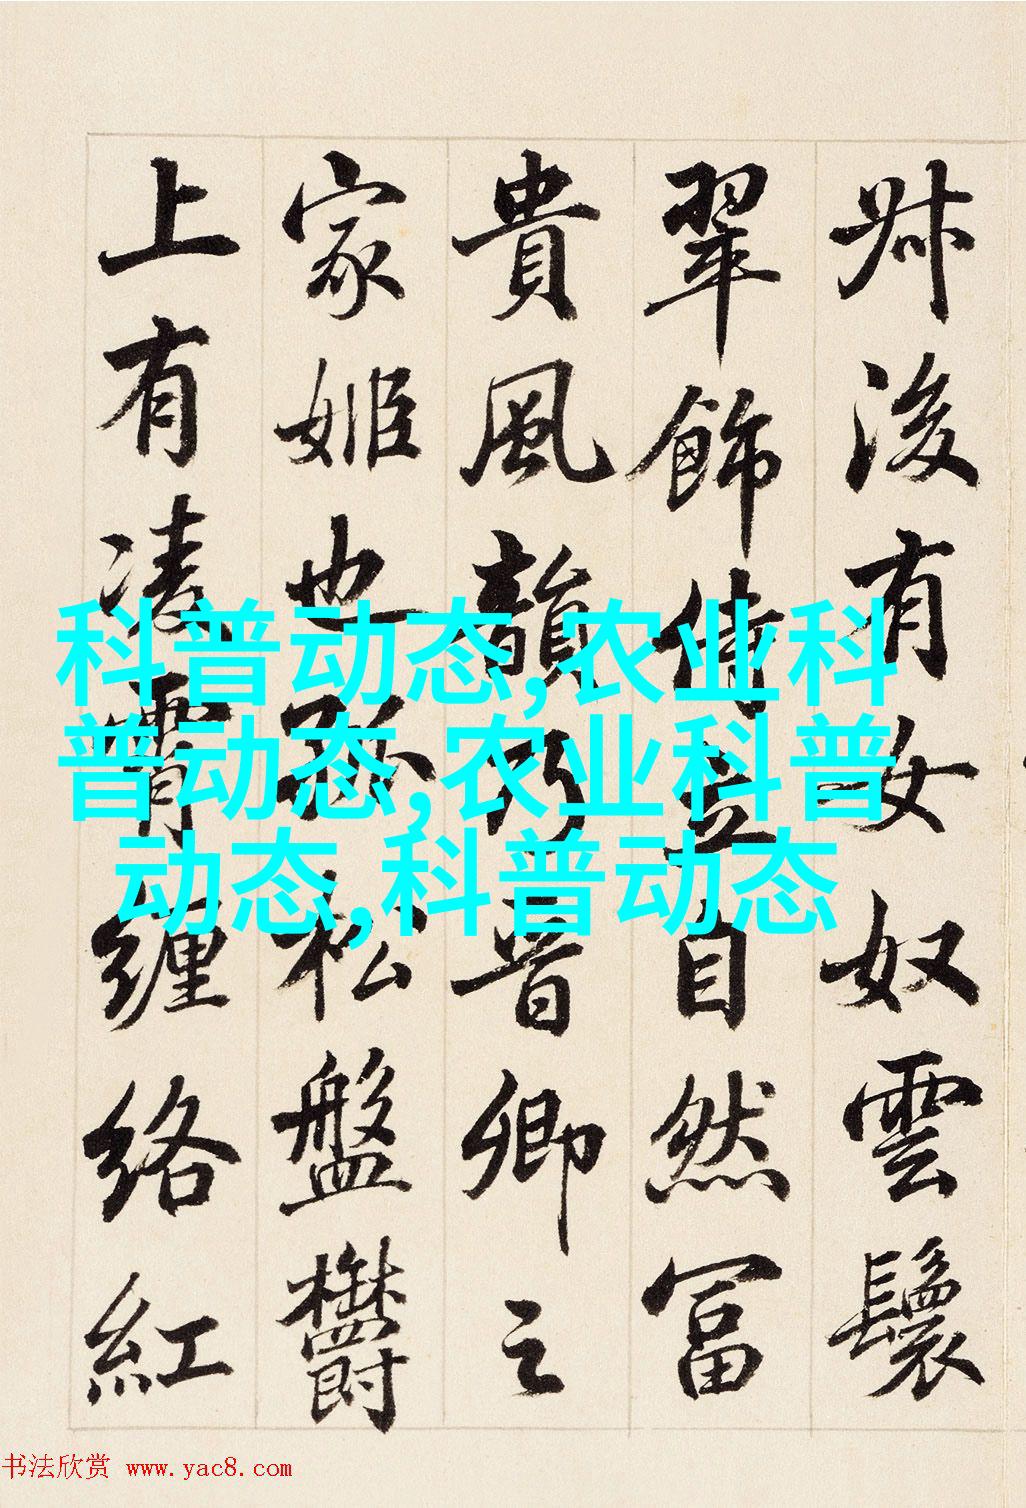 卌後有女奴雲鬟
翠飾倚立自然冨
貴風韻乃晋卿之
家姬也孤松盤欝
上有凌霄纏络紅
科普动态,农业科
普动态,农业科普
动态,科普动态
书法欣赏 www.yac8.com